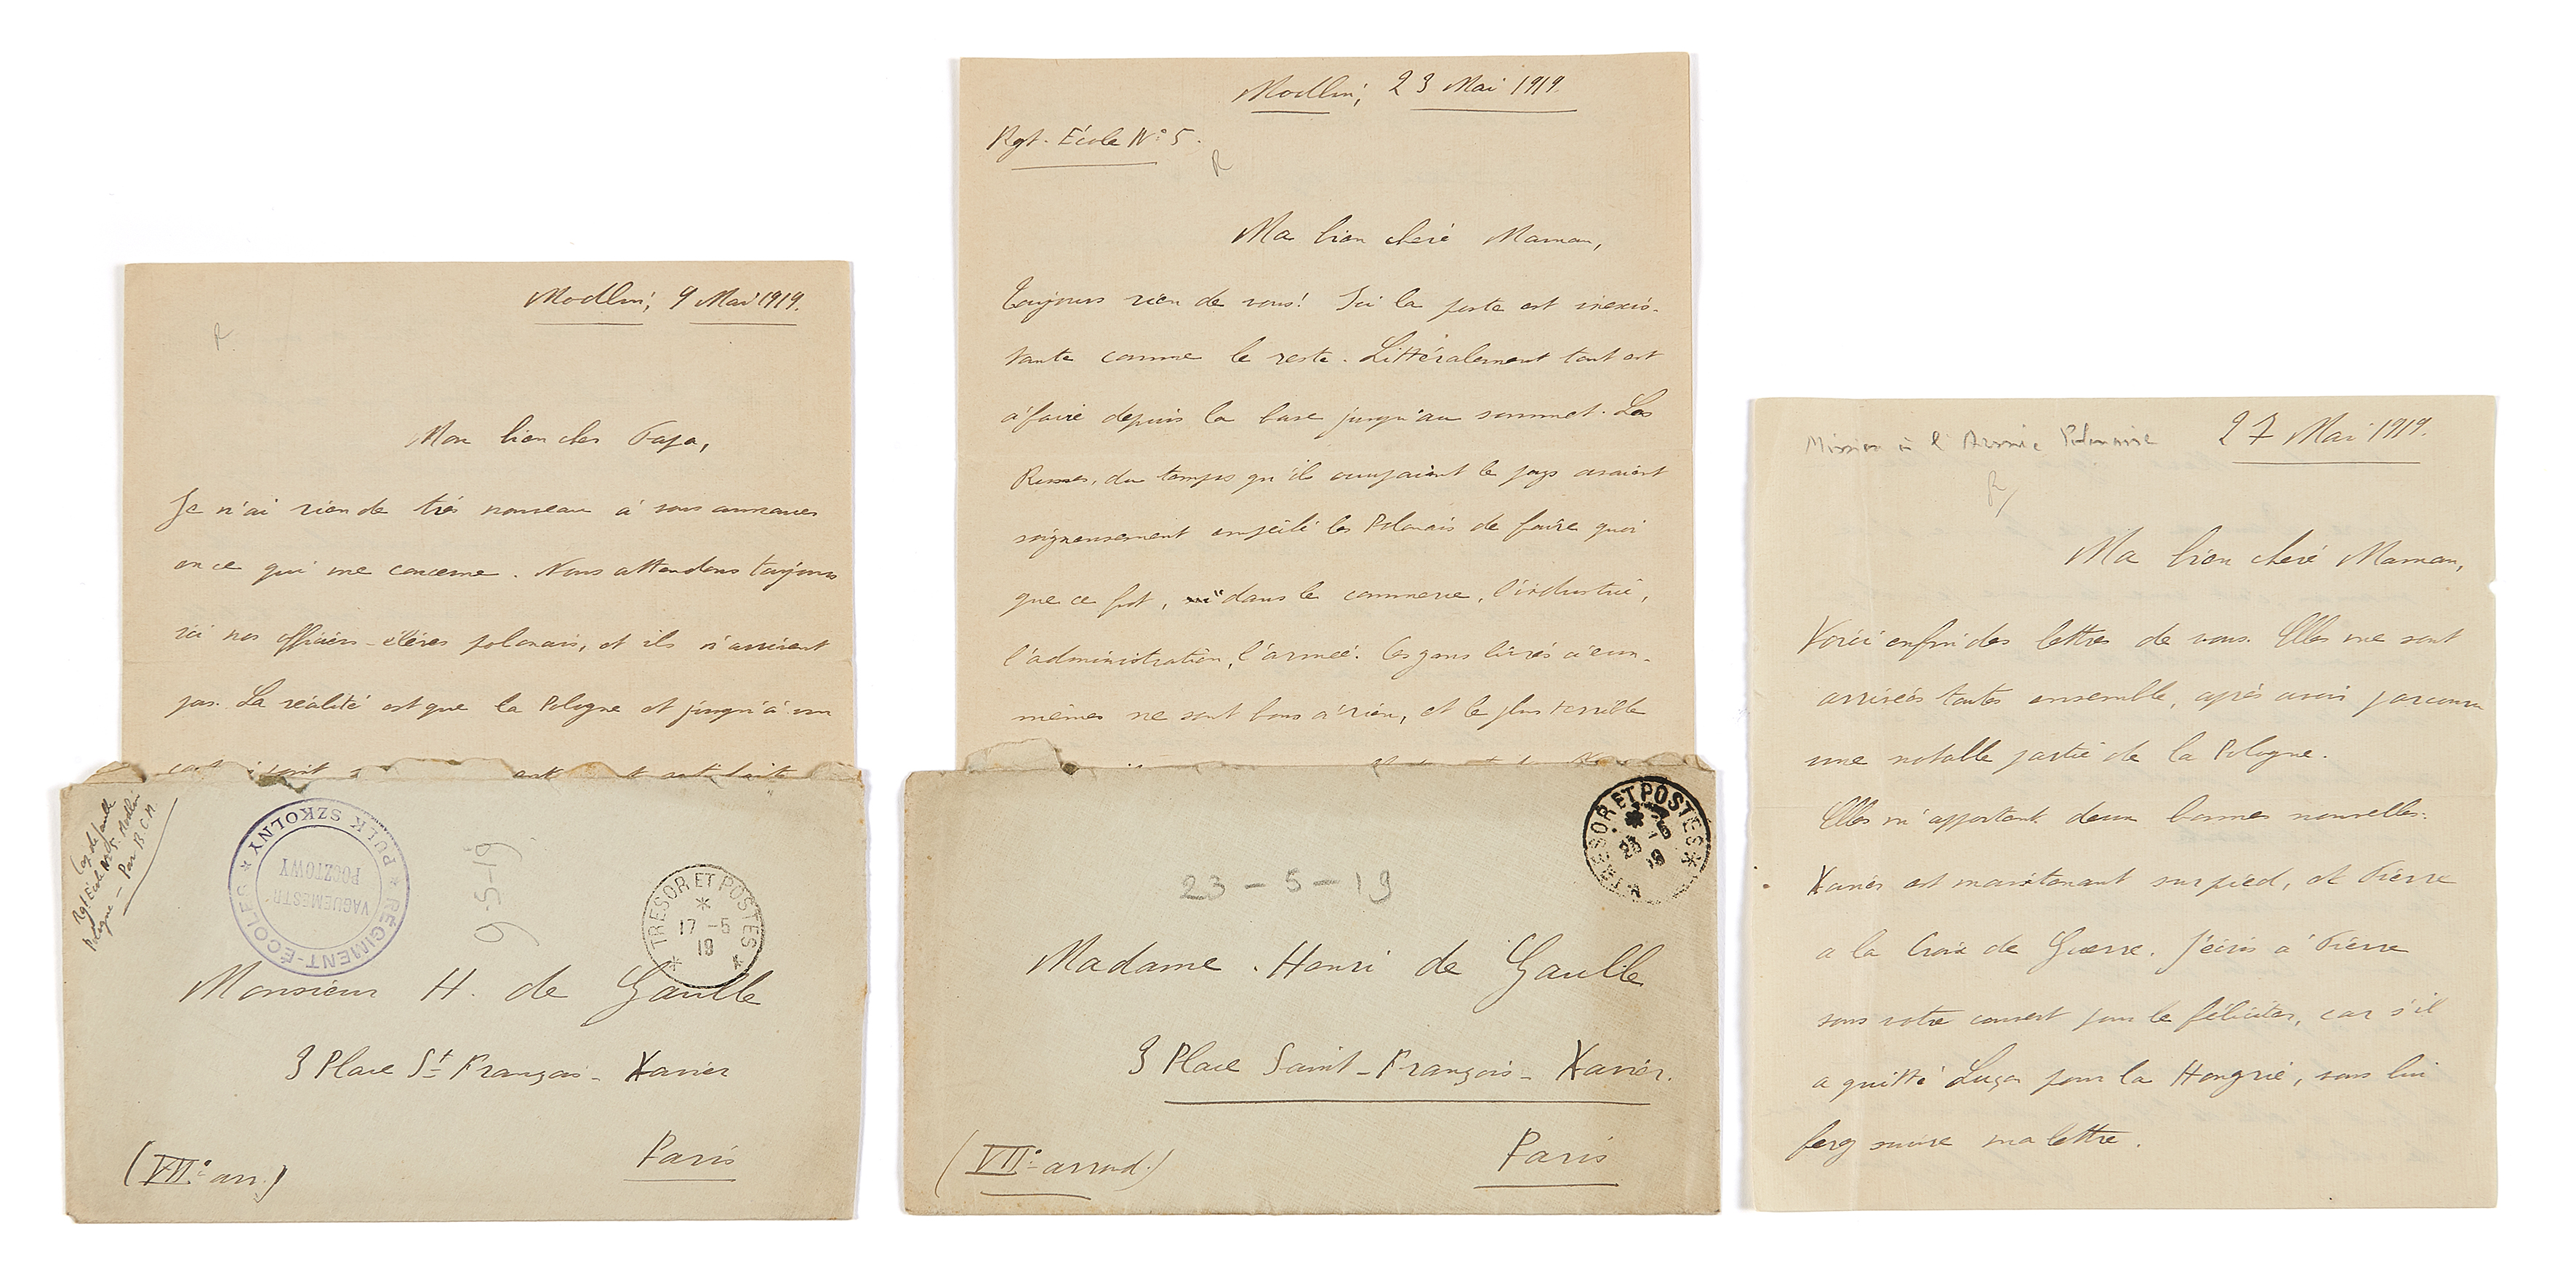 Modlin, 9 Mai 1919.
R
Mon bien cher Papa,
Je n'ai rien de très nouveau à vous annoncer
en ce qui me concerne. Nous attendons toujours
ici nos officiers-élèves polonais, et ils n'arrivent
pas. La réalité est que la Pologne et jusqu'à un
Cap. de Gaulle
Rgt École N° 5. Modlin
Pologne - Par B.C.M.
* RÉGIMENT-ÉCOLES * PULK SZKOLNY
VAGUEMESTR
POCZTOWY
9-5-19
TRESOR ET POSTES
17 -5
19
Monsieur H. de Gaulle
3 Place St François-Xavier
Paris
(VII° arr.)
Modlin, 23 Mai 1919.
Rgt. École N° 5.
R
Ma bien chère Maman,
Toujours rien de vous! Ici la poste est inexis-
tante comme le reste. Littéralement tout est
à faire depuis la base jusqu'au sommet. Les
Russes, du temps qu'ils occupaient le pays avaient
soigneusement empêché les Polonais de faire quoi
que ce fut, dans le commerce, l'industrie,
l'administration, l'armée. Ces gens livrés à eux-
mêmes ne sont bons à rien, et le plus terrible
TRESOR ET POSTES
23 - 5 - 19
Madame Henri de Gaulle
3 Place Saint-François-Xavier.
Paris
(VII° arrond.)
Mission à l'Armée Polonaise
27 Mai 1919.
R
Ma bien chère Maman,
Voici enfin des lettres de vous. Elles me sont
arrivées toutes ensemble, après avoir parcouru
une notable partie de la Pologne.
Elles m'apportent deux bonnes nouvelles:
Xavier est maintenant sur pied, et Pierre
a la Croix de Guerre. J'écris à Pierre
sous votre couvert pour le féliciter, car s'il
a quitté pour la Hongrie, vous lui
ferez suivre ma lettre.